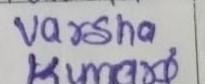 Varsha
Kumari